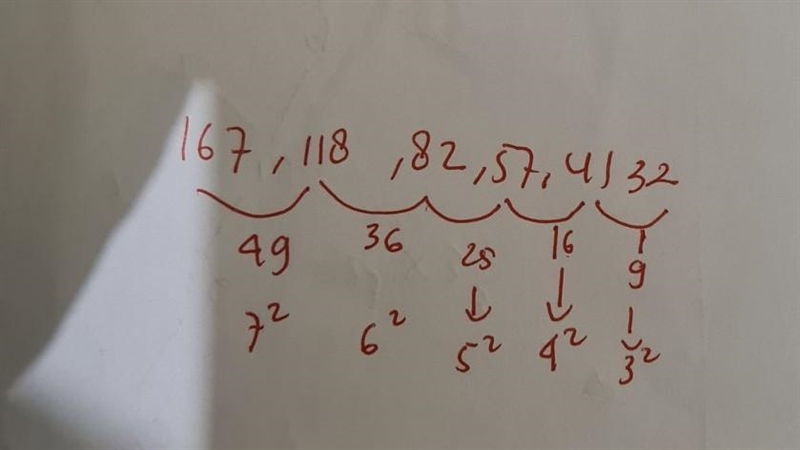 167, 118, 82, 57, 41 32
49 36 25 16 9
7² 6² 5² 4² 3²